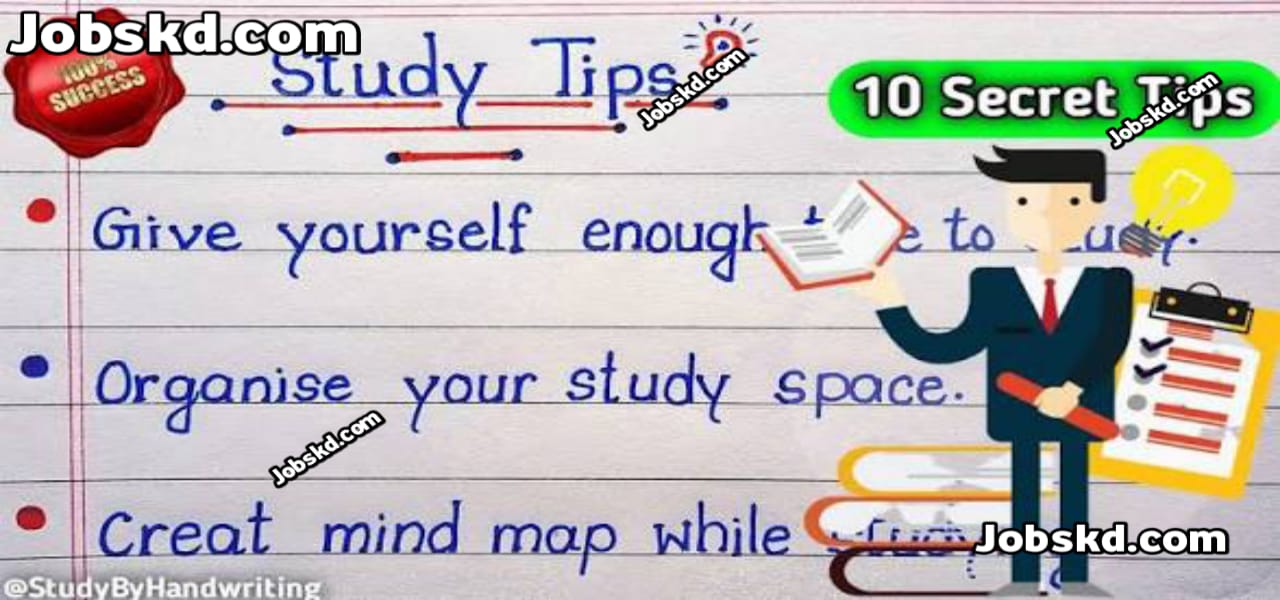 Jobskd.com
100%
SUCCESS
Study Tips
Jobskd.com
10 Secret Tips
Jobskd.com
Give yourself enough to
Organise your study space.
Jobskd.com
Creat mind map while
Jobskd.com
@StudyByHandwriting